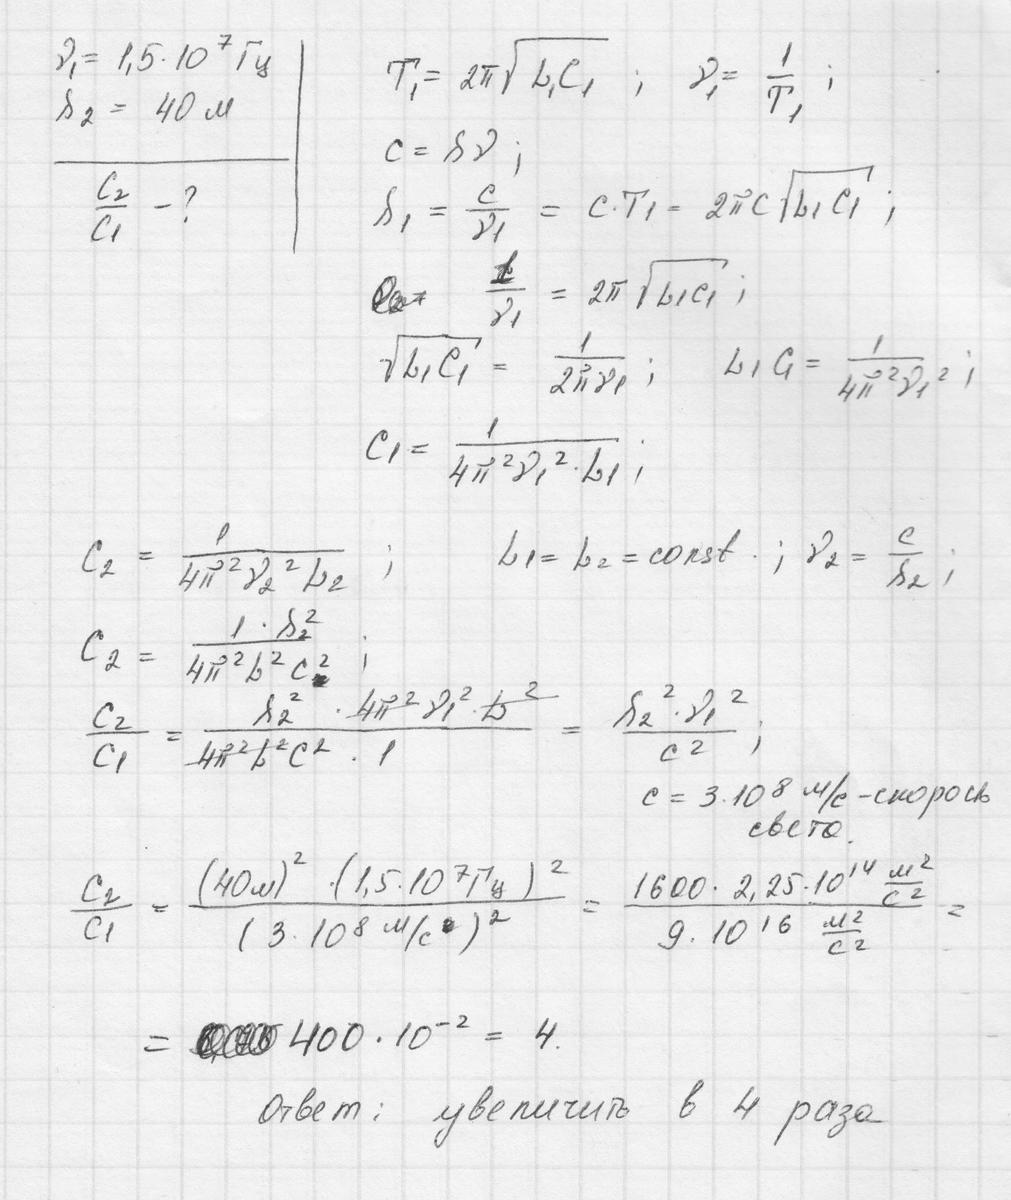 ν₁ = 1,5·10⁷ Гц
λ₂ = 40 м
C₂/C₁ - ?
T₁ = 2π√(L₁C₁) ; ν₁ = 1/T₁ ;
c = λν ;
λ₁ = c/ν₁ = c·T₁ = 2πc√(L₁C₁) ;
1/ν₁ = 2π√(L₁C₁) ;
√(L₁C₁) = 1/(2πν₁) ; L₁C₁ = 1/(4π²ν₁²) ;
C₁ = 1/(4π²ν₁²·L₁) ;
C₂ = 1/(4π²ν₂²L₂) ; L₁ = L₂ = const. ; ν₂ = c/λ₂ ;
C₂ = 1·λ₂²/(4π²L²c²) ;
C₂/C₁ = λ₂²·4π²ν₁²·L²/(4π²L²c²·1) = λ₂²·ν₁²/c² ;
c = 3·10⁸ м/с - скорось
света.
C₂/C₁ = (40м)²·(1,5·10⁷Гц)²/(3·10⁸ м/с)² = 1600·2,25·10¹⁴ м²/с² / 9·10¹⁶ м²/с² =
= 400·10⁻² = 4.
Ответ: увеличить в 4 раза